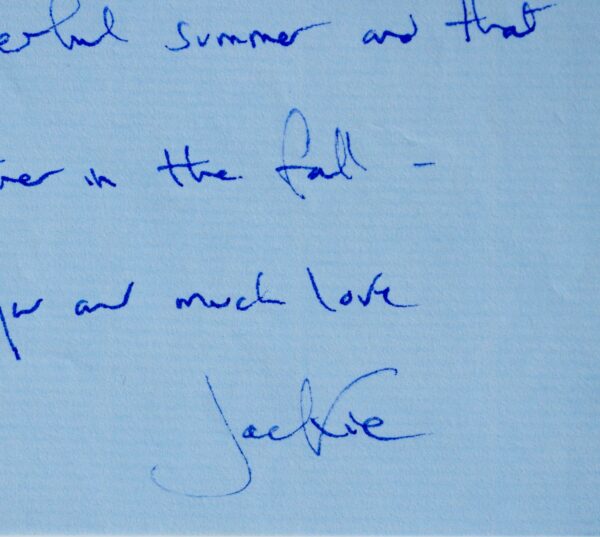 erful summer and that
er in the fall –
and much love
Jackie